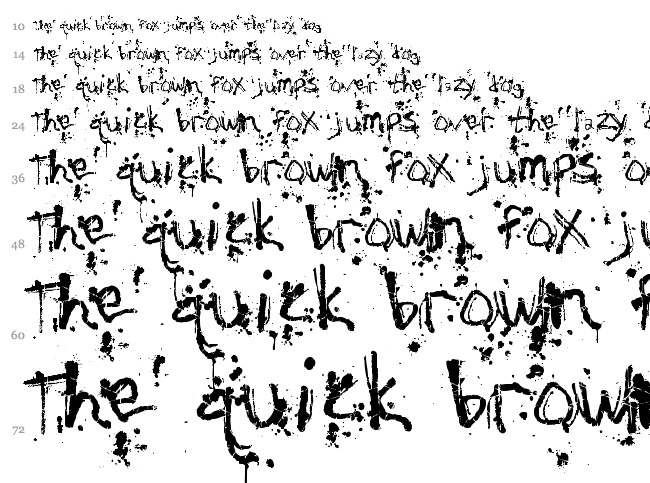 10 The quick brown fox jumps over the lazy dog
14 The quick brown fox jumps over the lazy dog
18 The quick brown fox jumps over the lazy dog
24 The quick brown fox jumps over the lazy d
36 The quick brown fox jumps o
48 The quick brown fox ju
60 The quick brown f
72 The quick brown